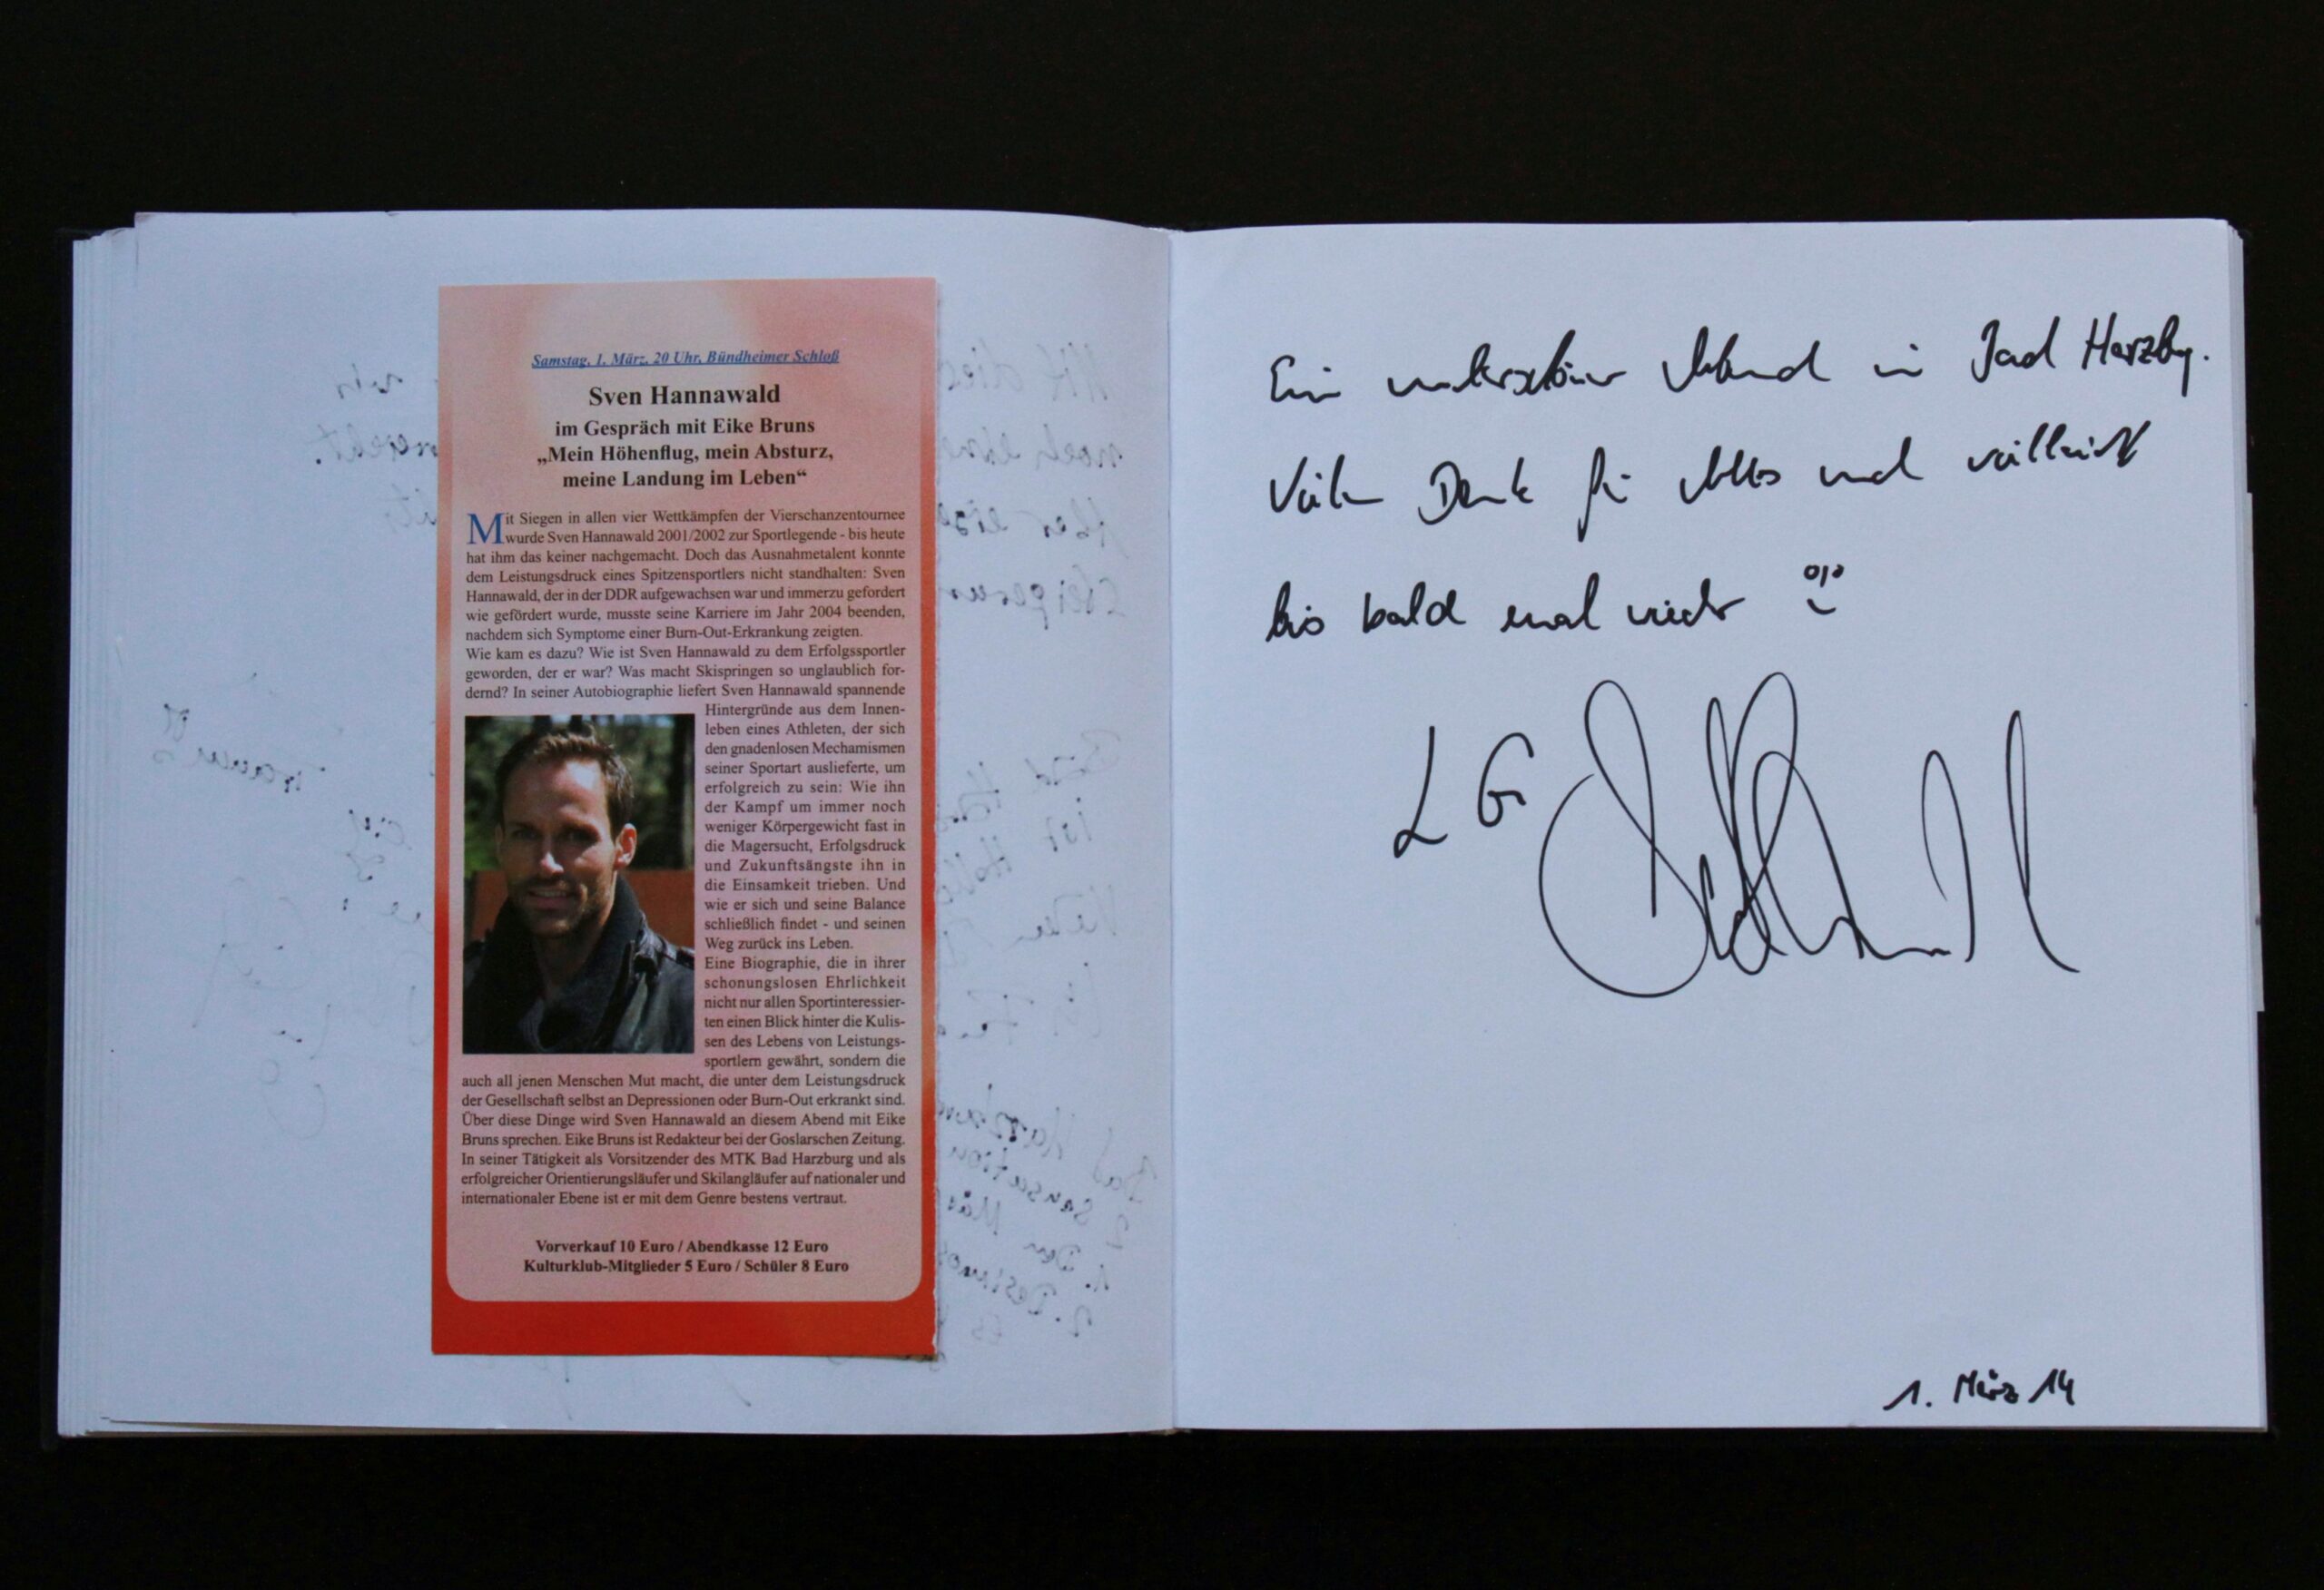 Samstag, 1. März, 20 Uhr, Bündheimer Schloß
Sven Hannawald
im Gespräch mit Eike Bruns
„Mein Höhenflug, mein Absturz,
meine Landung im Leben“
Mit Siegen in allen vier Wettkämpfen der Vierschanzentournee
wurde Sven Hannawald 2001/2002 zur Sportlegende - bis heute
hat ihm das keiner nachgemacht. Doch das Ausnahmetalent konnte
dem Leistungsdruck eines Spitzensportlers nicht standhalten: Sven
Hannawald, der in der DDR aufgewachsen war und immerzu gefordert
wie gefördert wurde, musste seine Karriere im Jahr 2004 beenden,
nachdem sich Symptome einer Burn-Out-Erkrankung zeigten.
Wie kam es dazu? Wie ist Sven Hannawald zu dem Erfolgssportler
geworden, der er war? Was macht Skispringen so unglaublich for-
dernd? In seiner Autobiographie liefert Sven Hannawald spannende
Hintergründe aus dem Innen-
leben eines Athleten, der sich
den gnadenlosen Mechamismen
seiner Sportart auslieferte, um
erfolgreich zu sein: Wie ihn
der Kampf um immer noch
weniger Körpergewicht fast in
die Magersucht, Erfolgsdruck
und Zukunftsängste ihn in
die Einsamkeit trieben. Und
wie er sich und seine Balance
schließlich findet - und seinen
Weg zurück ins Leben.
Eine Biographie, die in ihrer
schonungslosen Ehrlichkeit
nicht nur allen Sportinteressier-
ten einen Blick hinter die Kulis-
sen des Lebens von Leistungs-
sportlern gewährt, sondern die
auch all jenen Menschen Mut macht, die unter dem Leistungsdruck
der Gesellschaft selbst an Depressionen oder Burn-Out erkrankt sind.
Über diese Dinge wird Sven Hannawald an diesem Abend mit Eike
Bruns sprechen. Eike Bruns ist Redakteur bei der Goslarschen Zeitung.
In seiner Tätigkeit als Vorsitzender des MTK Bad Harzburg und als
erfolgreicher Orientierungsläufer und Skilangläufer auf nationaler und
internationaler Ebene ist er mit dem Genre bestens vertraut.
Vorverkauf 10 Euro / Abendkasse 12 Euro
Kulturklub-Mitglieder 5 Euro / Schüler 8 Euro
Ein wunderschöner Abend in Bad Harzbg.
Vielen Dank für Alles und vielleicht
bis bald mal wieder
LG
1. März 14